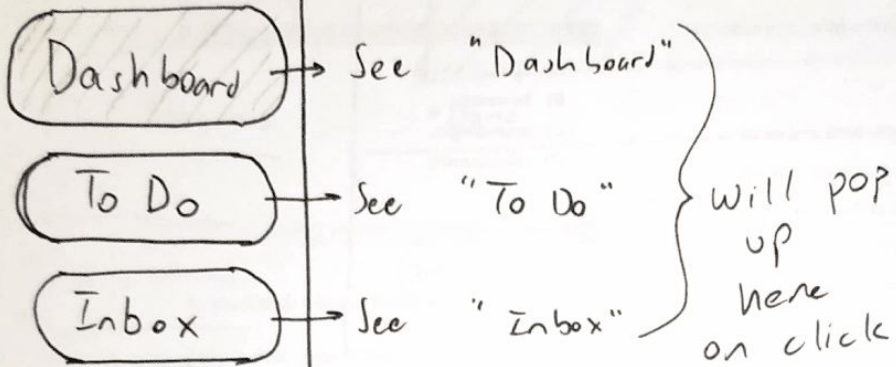 Dashboard See "Dashboard"
To Do See "To Do"
Inbox See "Inbox"
will pop
up
here
on click